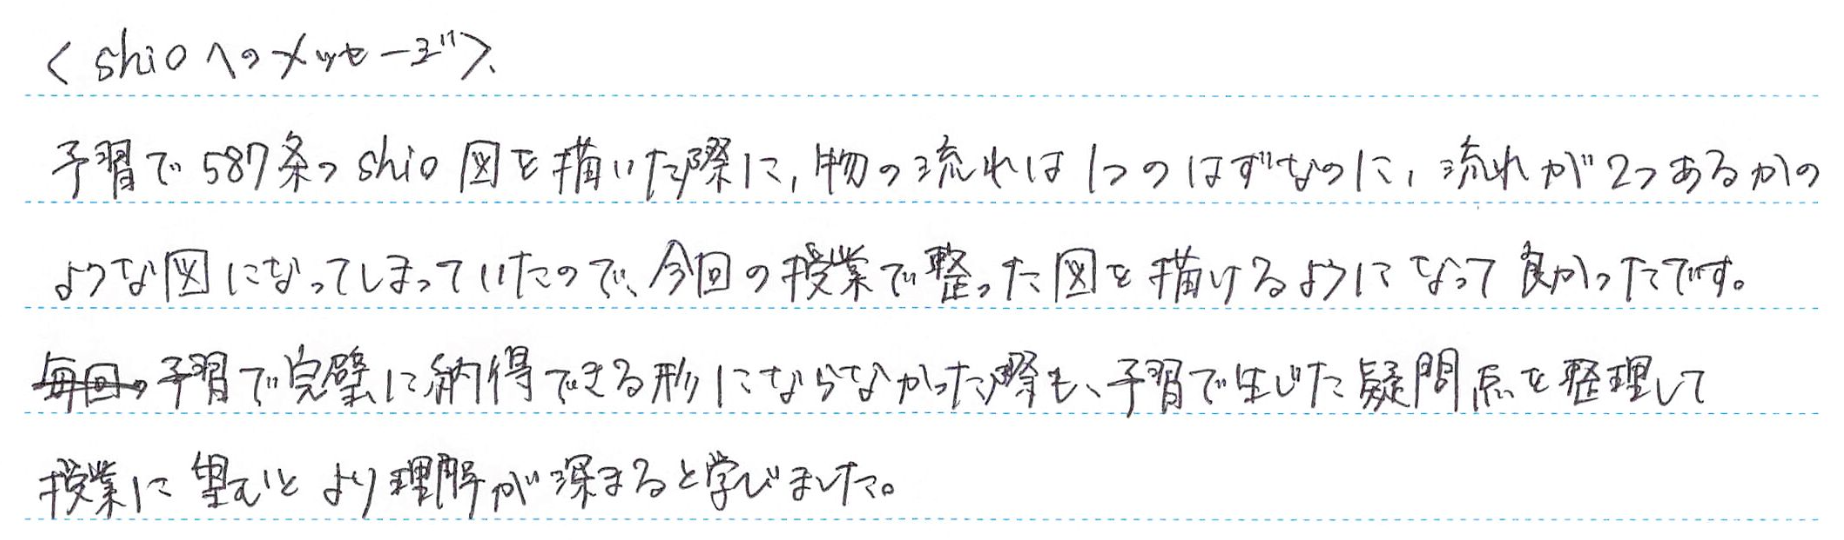 <shioへのメッセージ>
予習で587条のshio図を描いた際に,物の流れは1つのはずなのに,流れが2つあるかの
ような図になってしまっていたので、今回の授業で整った図を描けるようになって良かったです。
毎回の予習で完璧に納得できる形にならなかった際も、予習で生じた疑問点を整理して
授業に望むとより理解が深まると学びました。